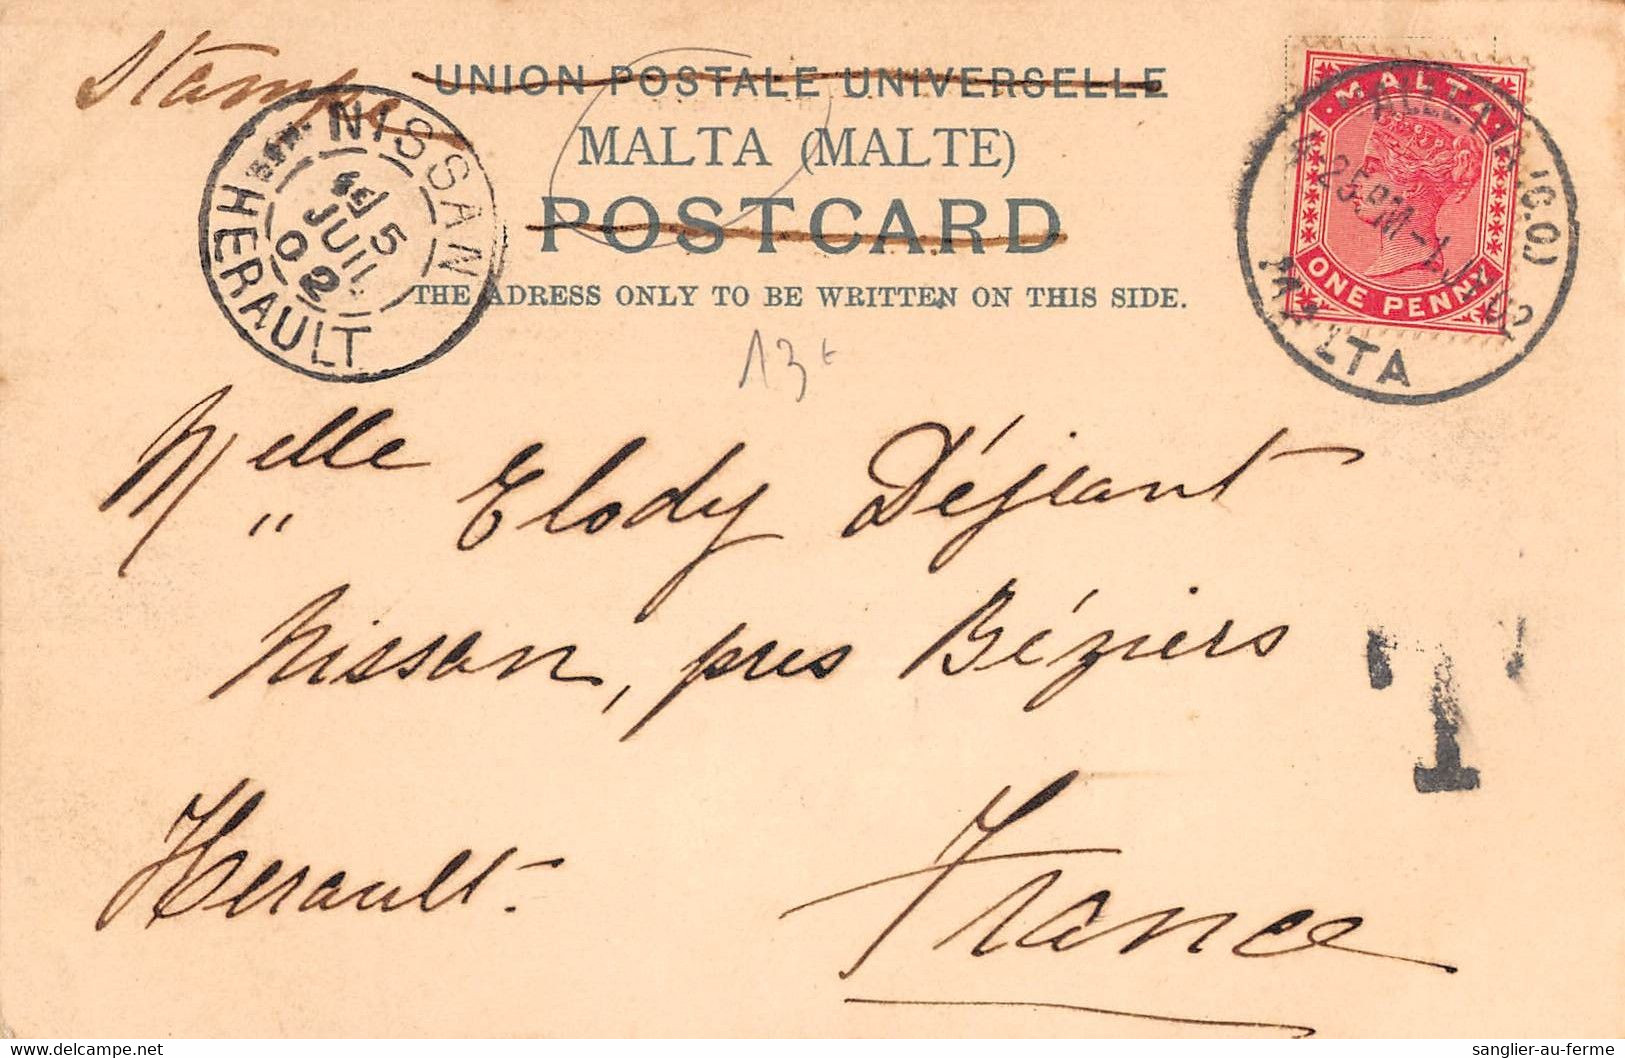 Stamps
UNION POSTALE UNIVERSELLE
MALTA (MALTE)
POSTCARD
THE ADRESS ONLY TO BE WRITTEN ON THIS SIDE.
NISSAN
5
JUIL
02
HERAULT
MALTA
ONE PENNY
VALLETTA (G.P.O.)
25 PM
MALTA
13 €
Melle Elody Déjeant
Nissan, près Béziers
Herault.
France
T
sanglier-au-ferme